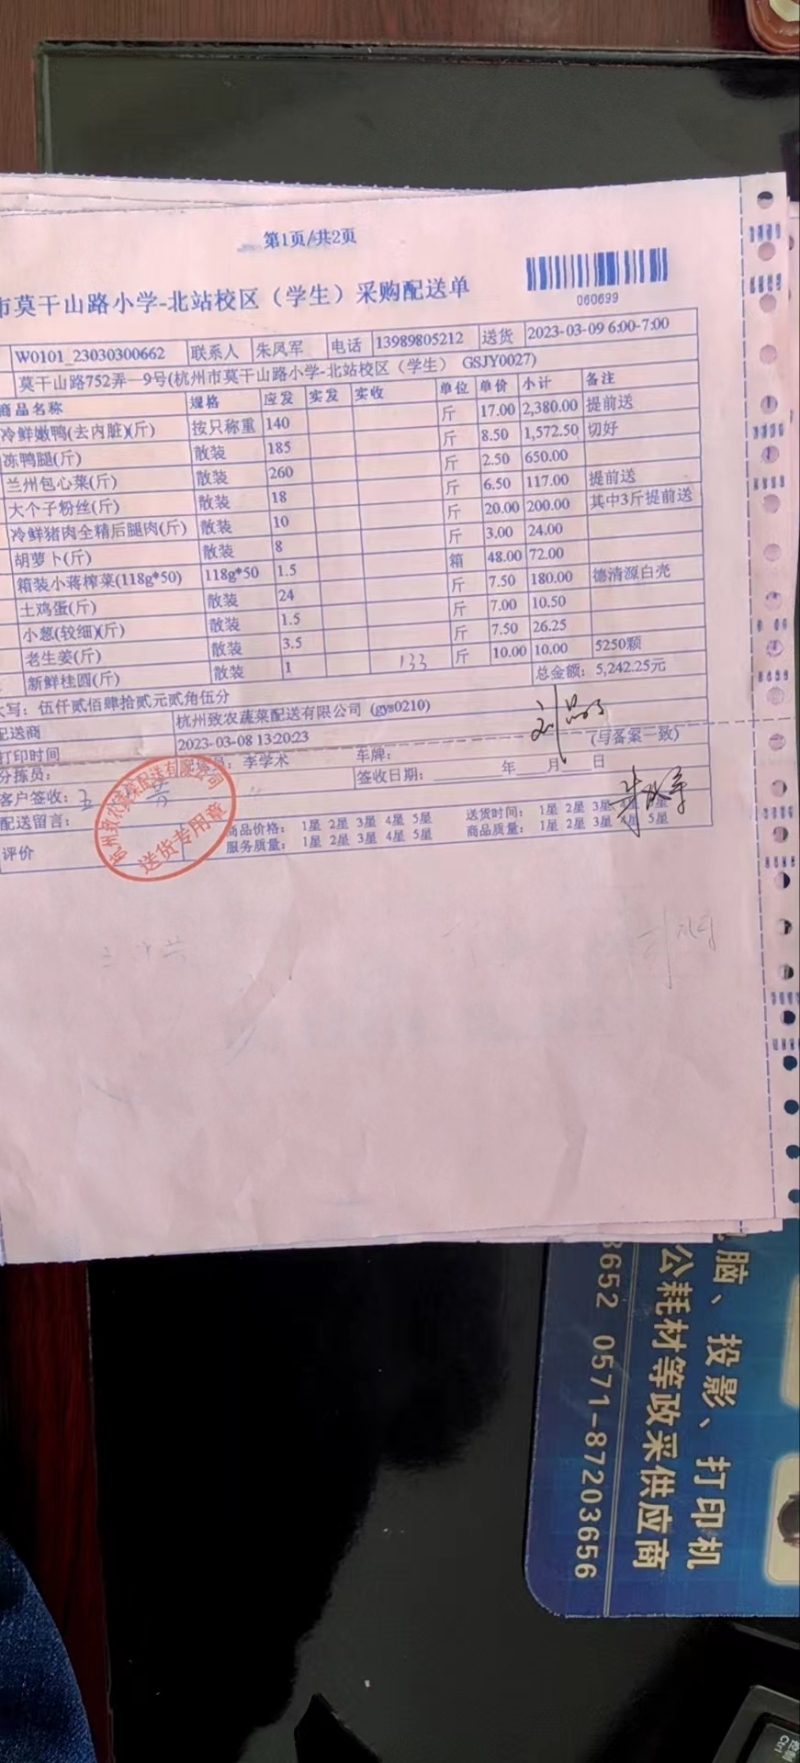 第1页/共2页
市莫干山路小学-北站校区（学生）采购配送单
060699
W0101_23030300662 联系人 朱凤军 电话 13989805212 送货 2023-03-09 6:00-7:00
莫干山路752弄—9号(杭州市莫干山路小学-北站校区（学生） GSJY0027)
商品名称 规格 应发 实发 实收 单位 单价 小计 备注
冷鲜嫩鸭(去内脏)(斤) 按只称重 140 斤 17.00 2,380.00 提前送
冻鸭腿(斤) 散装 185 斤 8.50 1,572.50 切好
兰州包心菜(斤) 散装 260 斤 2.50 650.00
大个子粉丝(斤) 散装 18 斤 6.50 117.00 提前送
冷鲜猪肉全精后腿肉(斤) 散装 10 斤 20.00 200.00 其中3斤提前送
胡萝卜(斤) 散装 8 斤 3.00 24.00
箱装小蒋榨菜(118g*50) 118g*50 1.5 箱 48.00 72.00
土鸡蛋(斤) 散装 24 斤 7.50 180.00 德清源白壳
小葱(较细)(斤) 散装 1.5 斤 7.00 10.50
老生姜(斤) 散装 3.5 斤 7.50 26.25
新鲜桂圆(斤) 散装 1 133 斤 10.00 10.00 5250颗
总金额： 5,242.25元
大写：伍仟贰佰肆拾贰元贰角伍分
配送商 杭州致农蔬菜配送有限公司 (gys0210)
打印时间 2023-03-08 13:20:23
(与备案一致)
分拣员： 李学术 车牌：
客户签收： 签收日期： 年 月 日
配送留言：
评价 商品价格： 1星 2星 3星 4星 5星 送货时间： 1星 2星 3星 4星 5星
服务质量： 1星 2星 3星 4星 5星 商品质量： 1星 2星 3星 4星 5星
杭州致农蔬菜配送有限公司
送货专用章
脑、投影、打印机
公耗材等政采供应商
3652 0571-87203656
Ctrl